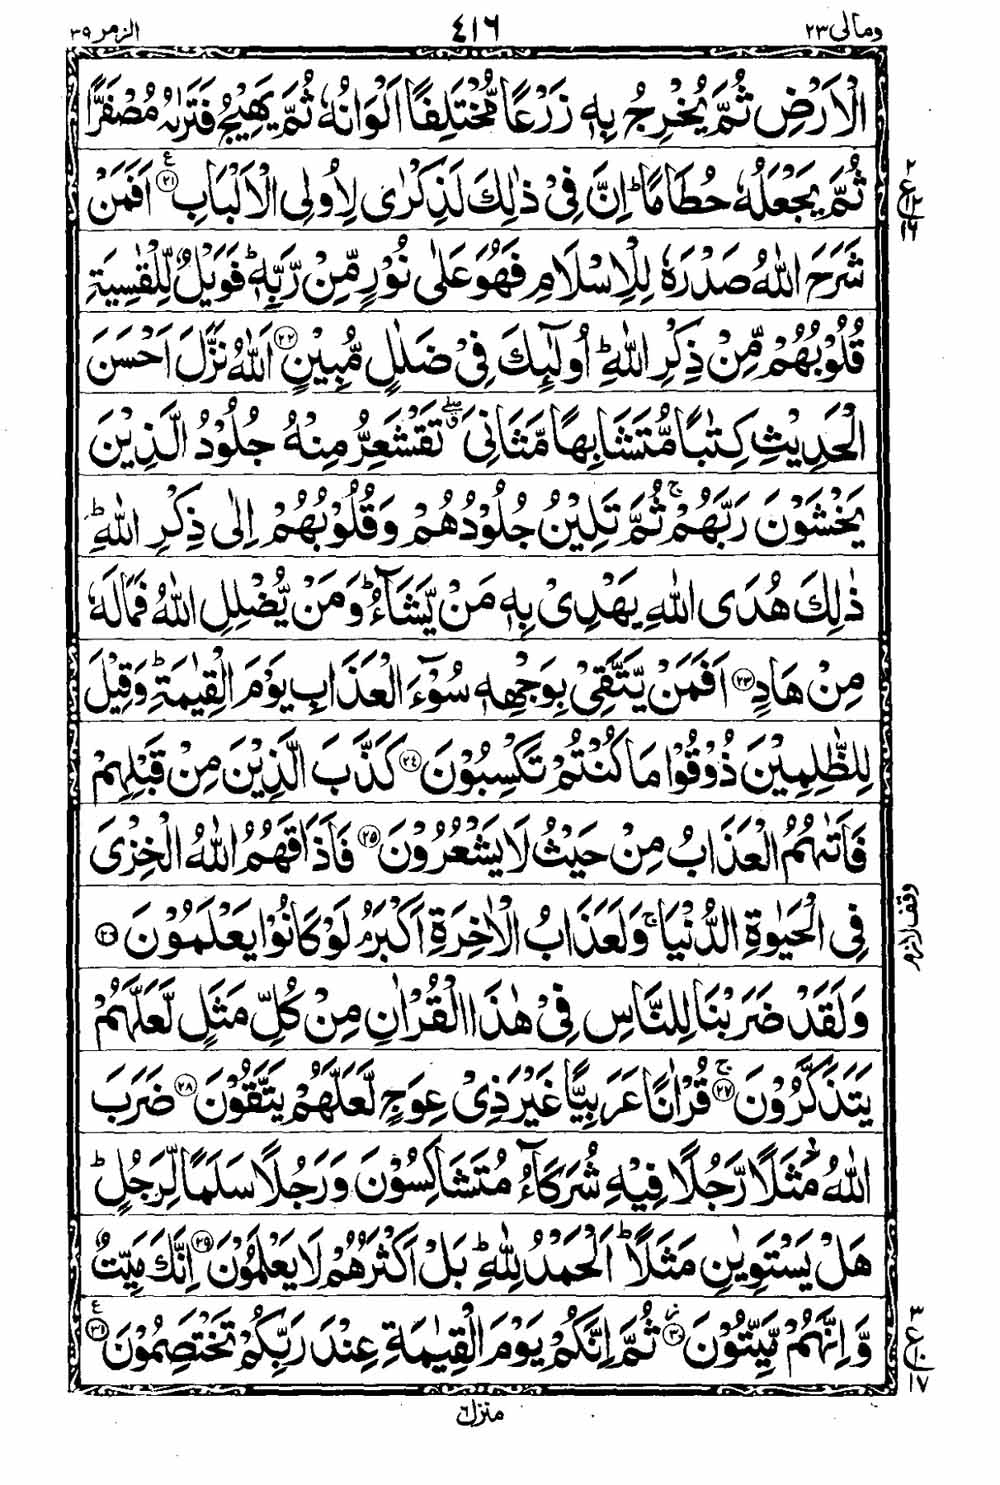 الزمر ٣٩ ٤١٦ ومالى ٢٣
الْاَرْضِ ثُمَّ يُخْرِجُ بِهٖ زَرْعًا مُّخْتَلِفًا اَلْوَانُهٗ ثُمَّ يَهِيْجُ فَتَرٰىهُ مُصْفَرًّا
ثُمَّ يَجْعَلُهٗ حُطَامًا ؕ اِنَّ فِيْ ذٰلِكَ لَذِكْرٰى لِاُولِى الْاَلْبَابِ ﴿٢١﴾ اَفَمَنْ
شَرَحَ اللّٰهُ صَدْرَهٗ لِلْاِسْلَامِ فَهُوَ عَلٰى نُوْرٍ مِّنْ رَّبِّهٖ ؕ فَوَيْلٌ لِّلْقٰسِيَةِ
قُلُوْبُهُمْ مِّنْ ذِكْرِ اللّٰهِ ؕ اُولٰٓئِكَ فِيْ ضَلٰلٍ مُّبِيْنٍ ﴿٢٢﴾ اَللّٰهُ نَزَّلَ اَحْسَنَ
الْحَدِيْثِ كِتٰبًا مُّتَشَابِهًا مَّثَانِيَ ۖق تَقْشَعِرُّ مِنْهُ جُلُوْدُ الَّذِيْنَ
يَخْشَوْنَ رَبَّهُمْ ۚ ثُمَّ تَلِيْنُ جُلُوْدُهُمْ وَقُلُوْبُهُمْ اِلٰى ذِكْرِ اللّٰهِ ؕ
ذٰلِكَ هُدَى اللّٰهِ يَهْدِيْ بِهٖ مَنْ يَّشَآءُ ؕ وَمَنْ يُّضْلِلِ اللّٰهُ فَمَا لَهٗ
مِنْ هَادٍ ﴿٢٣﴾ اَفَمَنْ يَّتَّقِيْ بِوَجْهِهٖ سُوْٓءَ الْعَذَابِ يَوْمَ الْقِيٰمَةِ ؕ وَقِيْلَ
لِلظّٰلِمِيْنَ ذُوْقُوْا مَا كُنْتُمْ تَكْسِبُوْنَ ﴿٢٤﴾ كَذَّبَ الَّذِيْنَ مِنْ قَبْلِهِمْ
فَاَتٰىهُمُ الْعَذَابُ مِنْ حَيْثُ لَا يَشْعُرُوْنَ ﴿٢٥﴾ فَاَذَاقَهُمُ اللّٰهُ الْخِزْيَ
فِي الْحَيٰوةِ الدُّنْيَا ۚ وَلَعَذَابُ الْاٰخِرَةِ اَكْبَرُ ۘ لَوْ كَانُوْا يَعْلَمُوْنَ ﴿٢٦﴾
وَلَقَدْ ضَرَبْنَا لِلنَّاسِ فِيْ هٰذَا الْقُرْاٰنِ مِنْ كُلِّ مَثَلٍ لَّعَلَّهُمْ
يَتَذَكَّرُوْنَ ﴿٢٧﴾ ۚ قُرْاٰنًا عَرَبِيًّا غَيْرَ ذِيْ عِوَجٍ لَّعَلَّهُمْ يَتَّقُوْنَ ﴿٢٨﴾ ضَرَبَ
اللّٰهُ مَثَلًا رَّجُلًا فِيْهِ شُرَكَآءُ مُتَشَاكِسُوْنَ وَرَجُلًا سَلَمًا لِّرَجُلٍ ؕ
هَلْ يَسْتَوِيٰنِ مَثَلًا ؕ اَلْحَمْدُ لِلّٰهِ ؕ بَلْ اَكْثَرُهُمْ لَا يَعْلَمُوْنَ ﴿٢٩﴾ اِنَّكَ مَيِّتٌ
وَّاِنَّهُمْ مَّيِّتُوْنَ ﴿٣٠﴾ ثُمَّ اِنَّكُمْ يَوْمَ الْقِيٰمَةِ عِنْدَ رَبِّكُمْ تَخْتَصِمُوْنَ ﴿٣١﴾
٢
ع
١٢
١٦
وقف لازم
٣
ع
١٠
١٧
منزل ٦